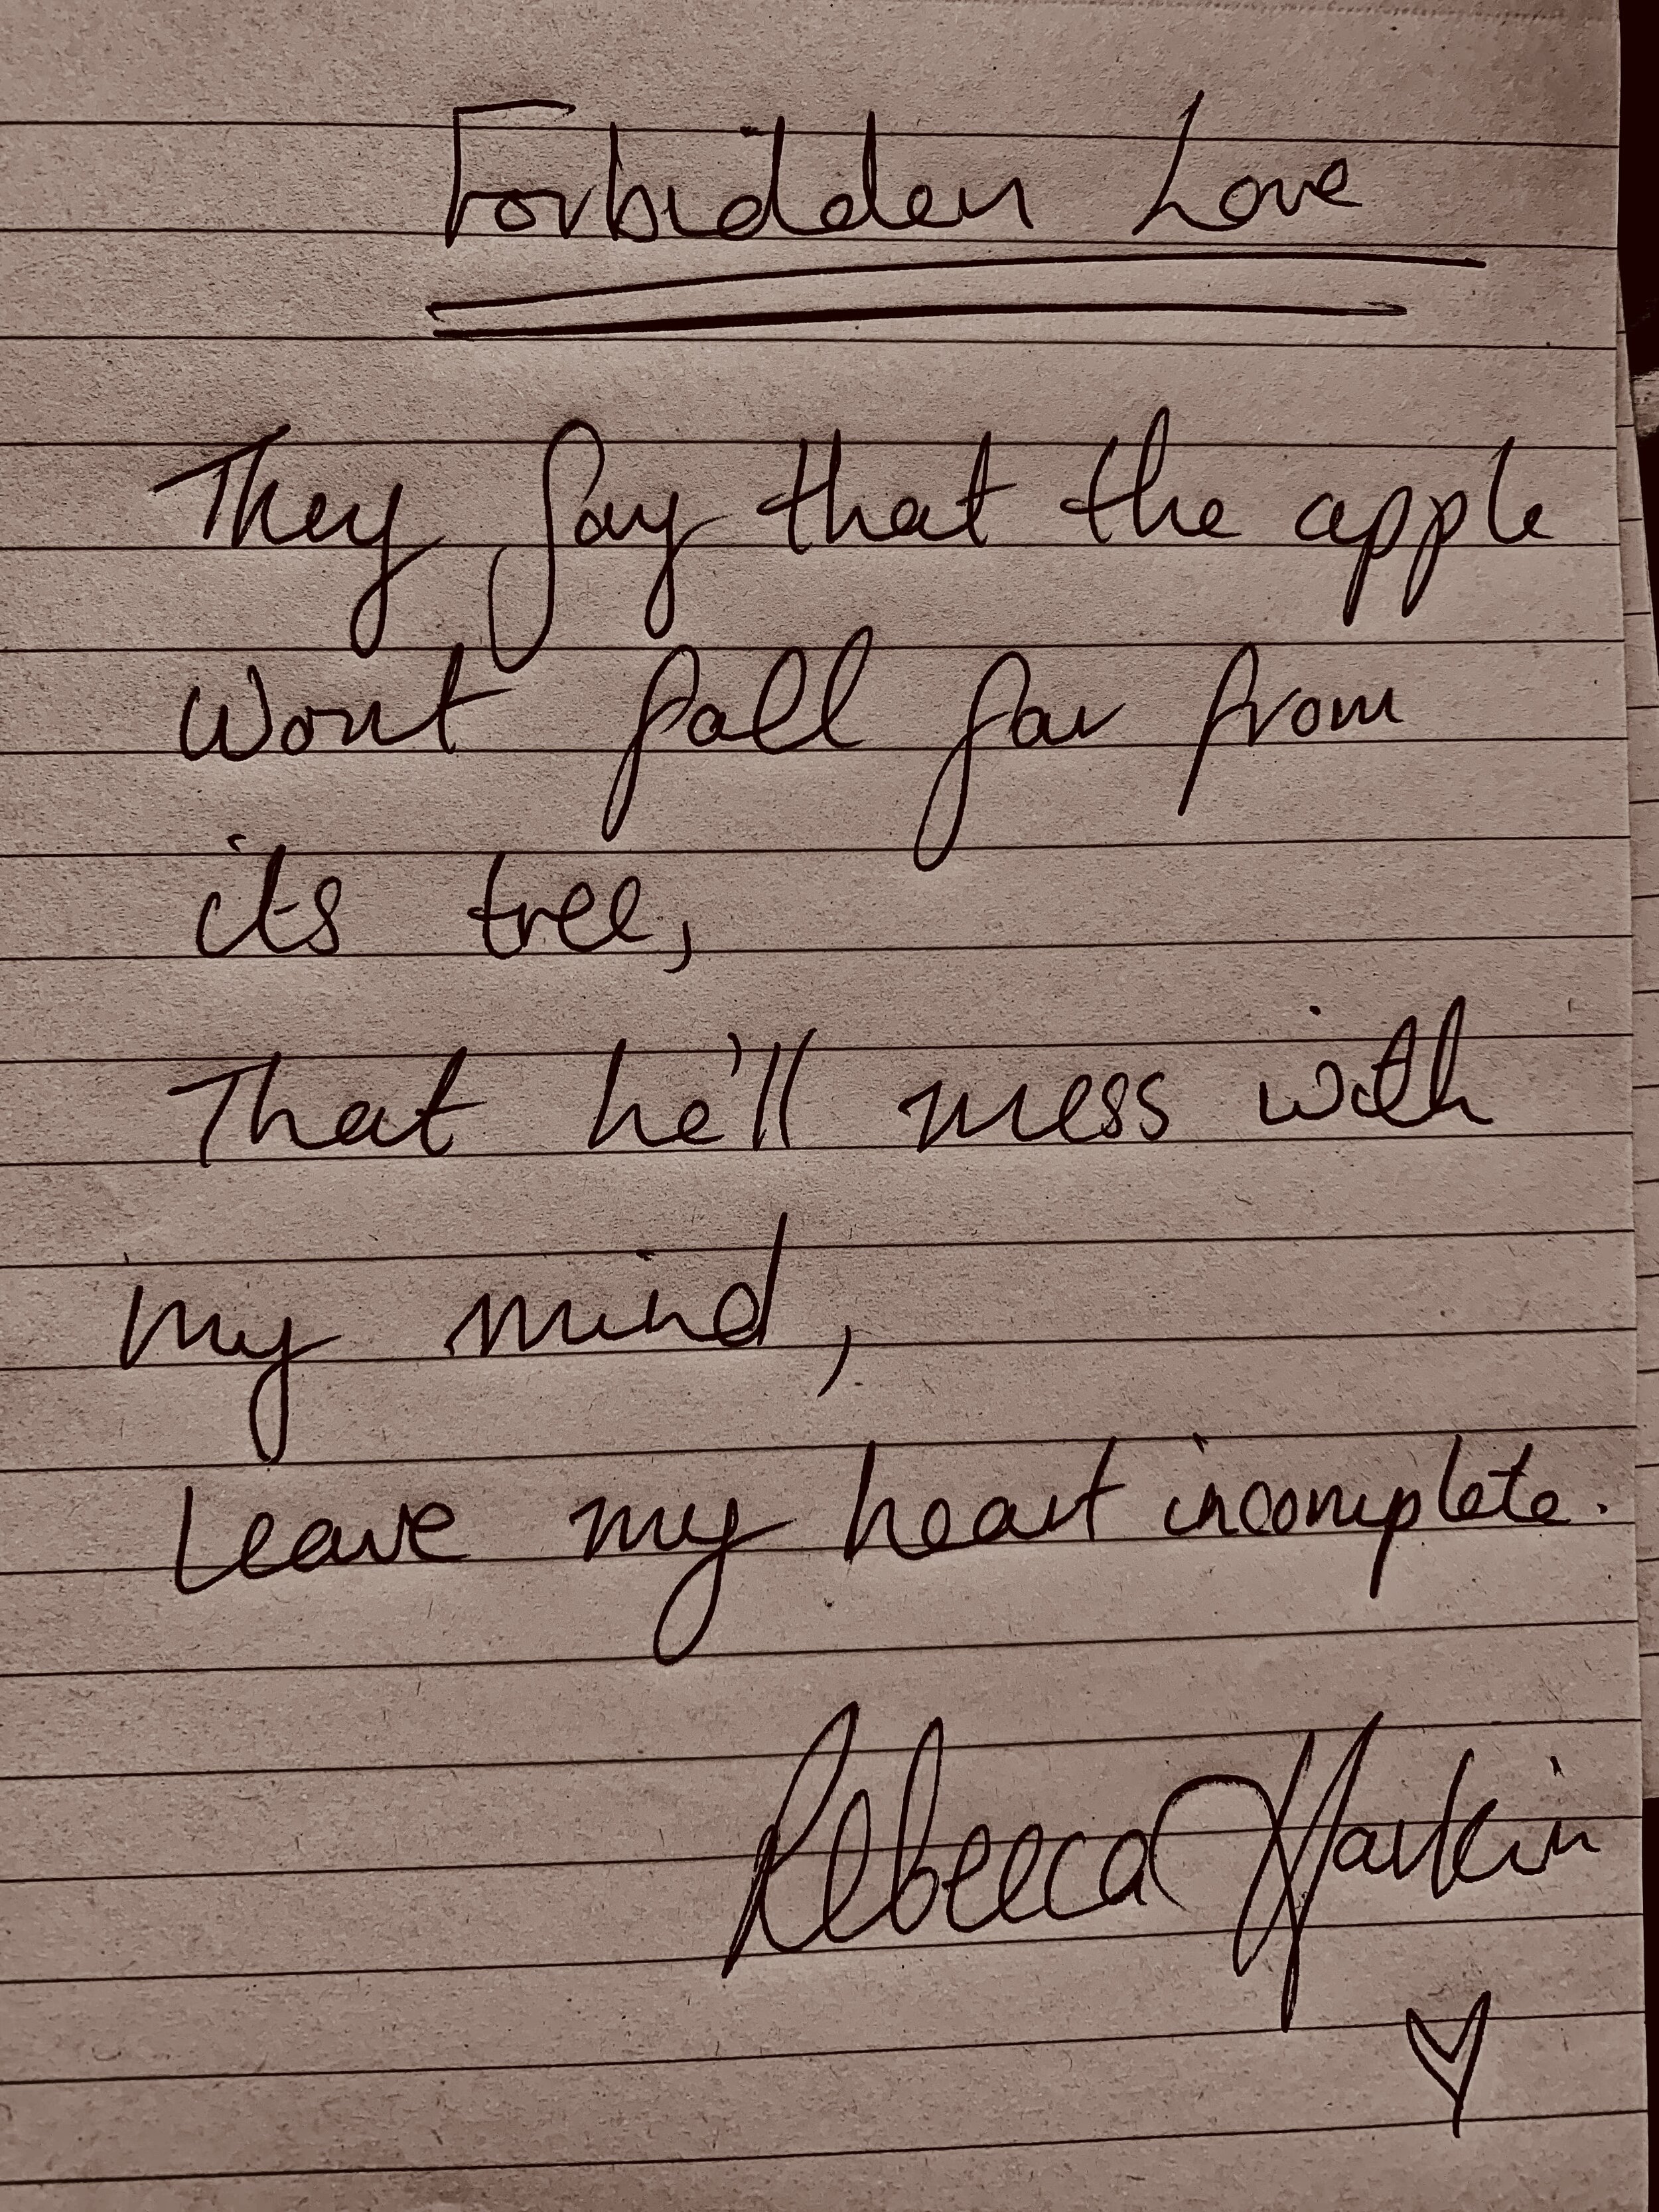 Forbidden Love
They say that the apple
wont fall far from
its tree,
That he'll mess with
my mind,
Leave my heart incomplete.
Rebecca Harkin